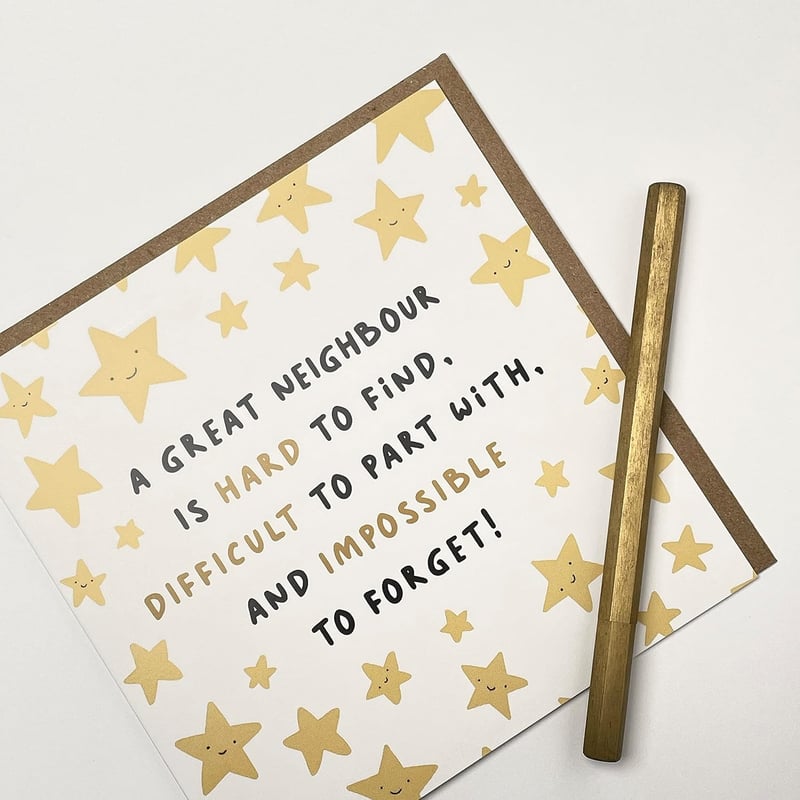 A GREAT NEIGHBOUR
IS HARD TO FIND,
DIFFICULT TO PART WITH,
AND IMPOSSIBLE
TO FORGET!